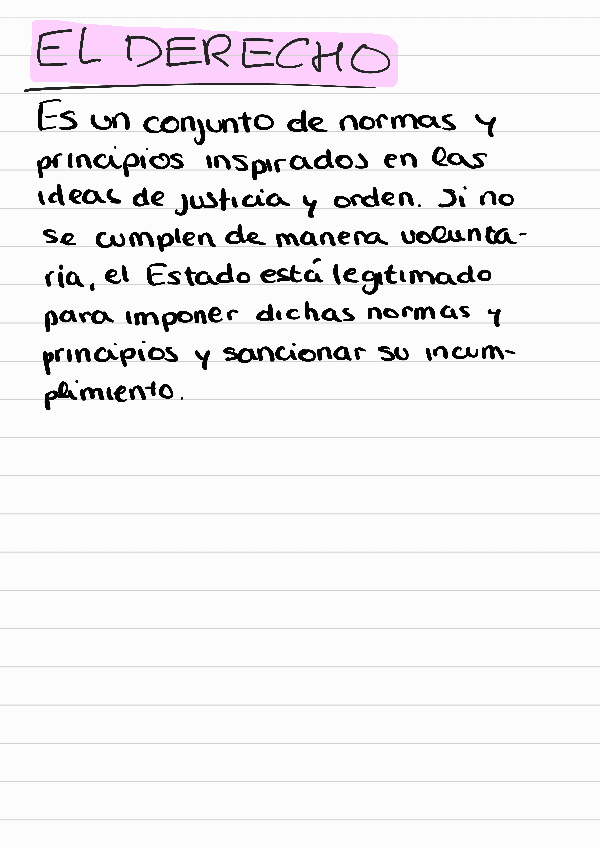 EL DERECHO
Es un conjunto de normas y
principios inspirados en las
ideas de justicia y orden. Si no
se cumplen de manera volunta-
ria, el Estado está legitimado
para imponer dichas normas y
principios y sancionar su incum-
plimiento.